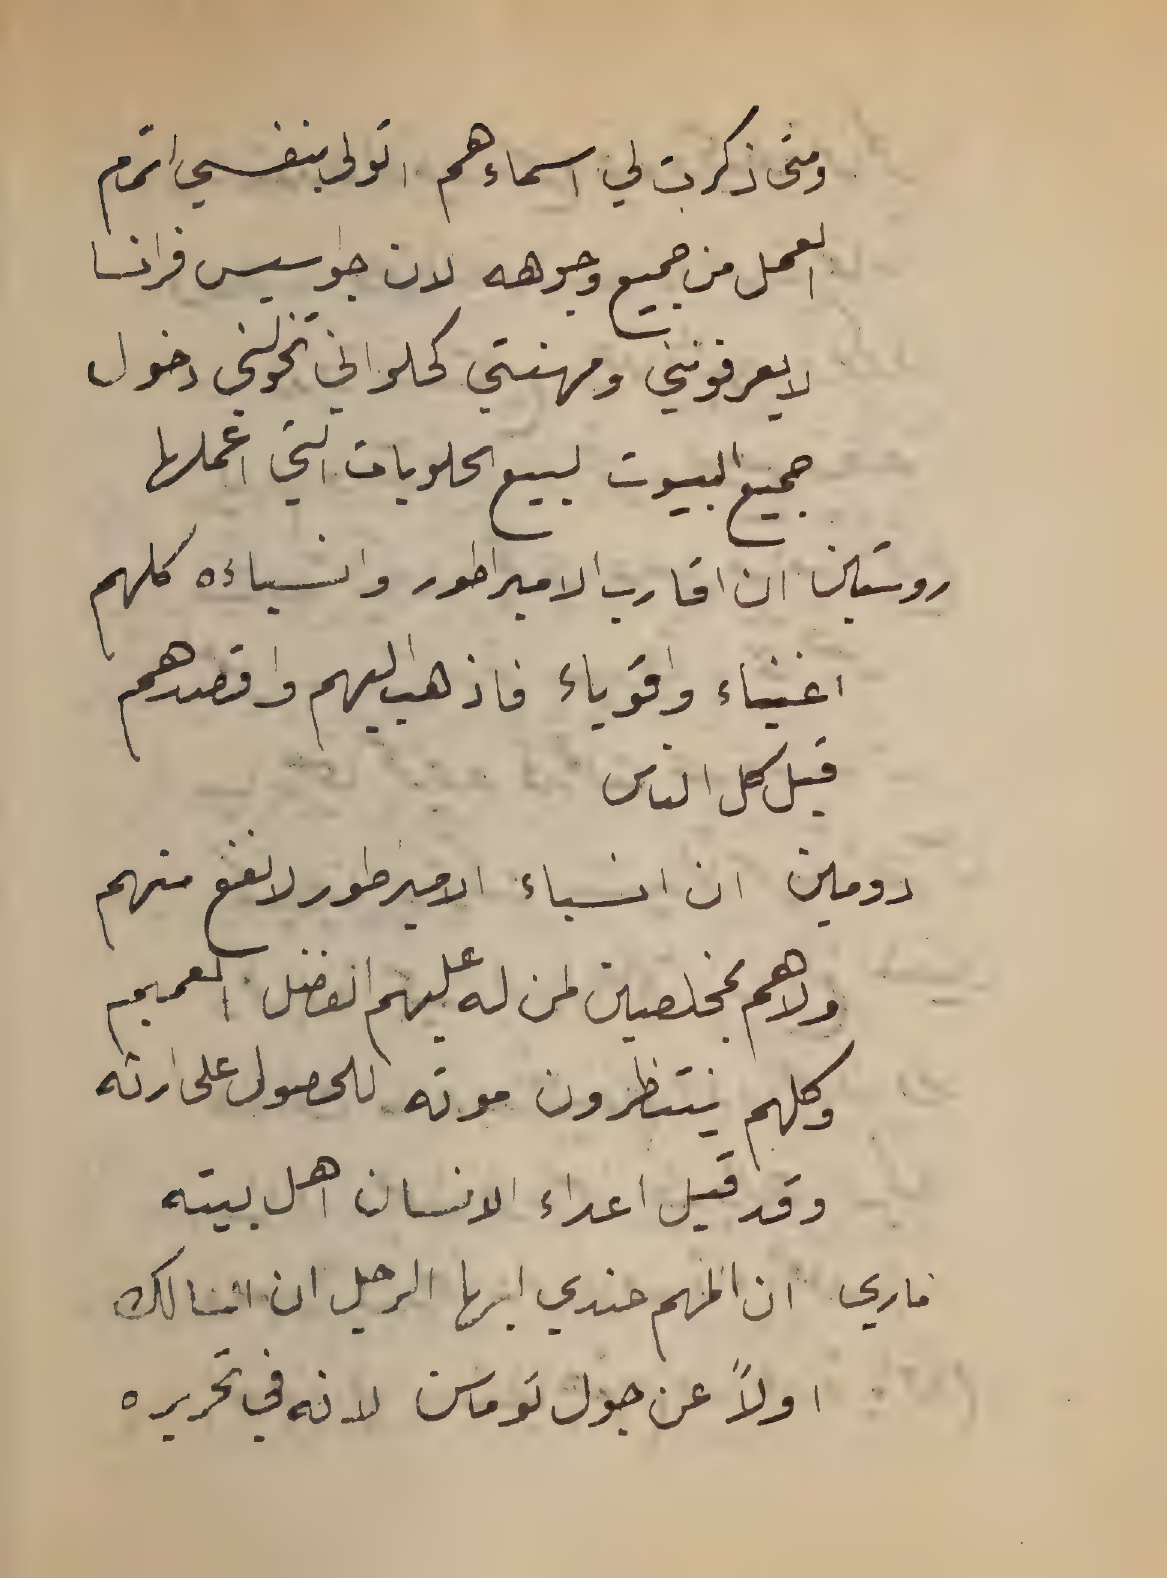 ومتى ذكرت لي اسماءهم اتولى بنفسي اتمم
العمل من جميع وجوهه لان جواسيس فرانسا
لا يعرفونني ومهنتي كحلواني تخولني دخول
جميع البيوت لبيع الحلويات التي اعملها
روستين ان اقارب الامبراطور وانسباءه كلهم
اغنياء واقوياء فاذهب اليهم واقصدهم
قبل كل الناس
دومين ان انسباء الامبراطور لا نفع منهم
ولا هم بمخلصين لمن له عليهم الفضل العميم
وكلهم ينتظرون موته للحصول على ارثه
وقد قيل اعداء الانسان اهل بيته
ماري ان المهم عندي ايها الرجل ان اسالك
اولاً عن جول توماس لانه في تحريره